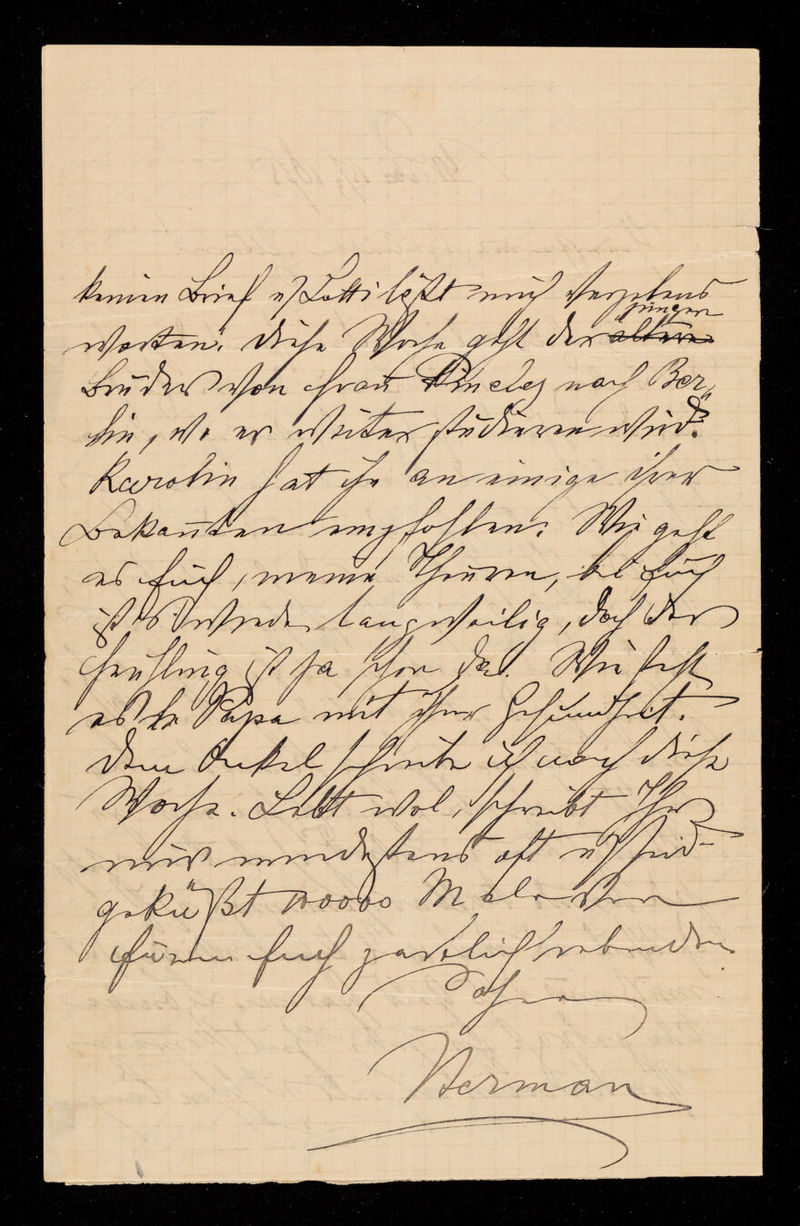 keinen Brief u. Lotti läßt mich vergebens
jüngere
warten. Diese Woche geht der ältere
Bruder von Frau Pineles nach Ber-
lin, wo er weiter studieren wird.
Karolin hat ihn an einige ihrer
Bekannten empfohlen. Wie geht
es Euch, meine Theuren, bei Euch
ist es wieder langweilig, doch der
Frühling ist ja schon da. Wie steht
es l. Papa mit Ihrer Gesundheit.
Dem Onkel schreibe ich noch diese
Woche. Lebt wol, schreibt Ihr
mir mindestens oft u. seid
geküßt 10000 Male von
Eurem Euch zärtlich liebenden
Sohne
Herman